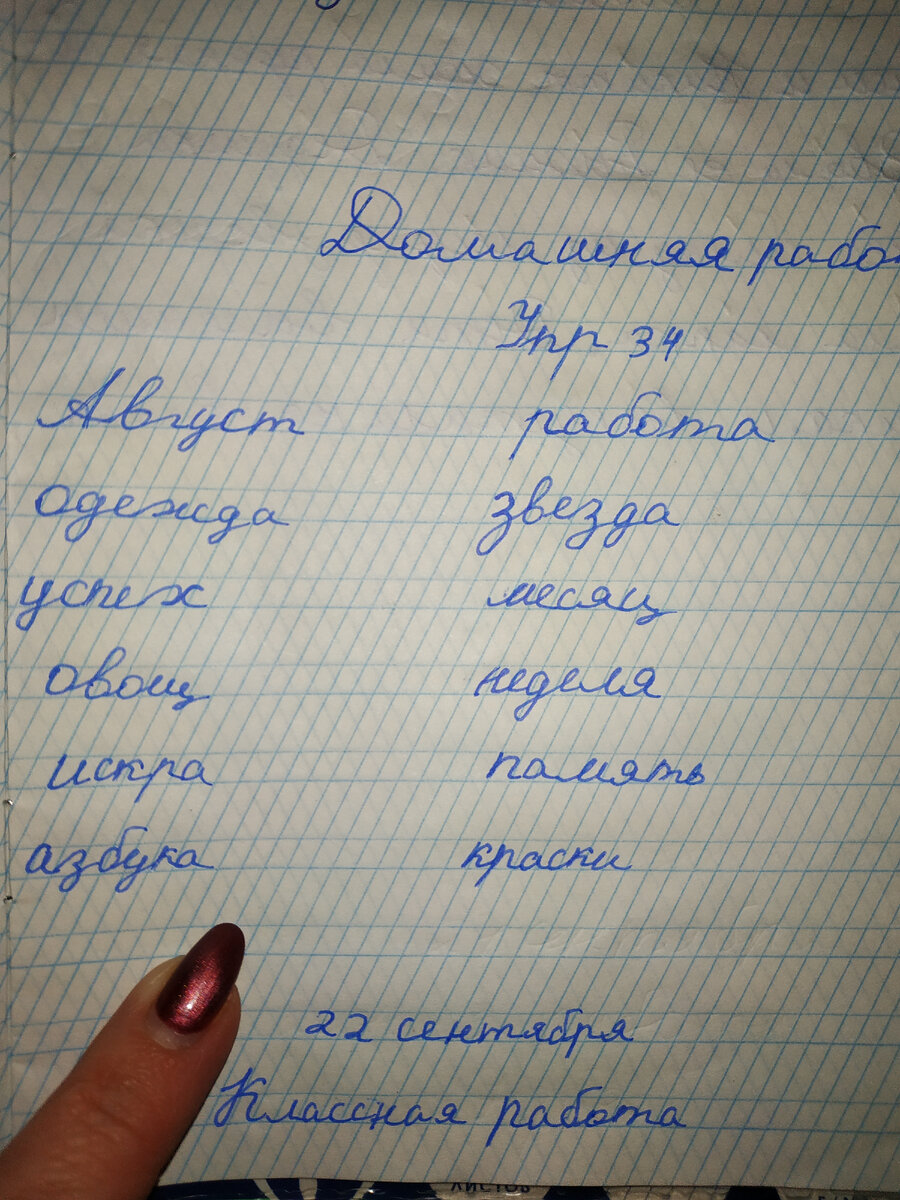 Домашняя рабо
Упр 34
Август работа
одежда звезда
успех месяц
овощ неделя
искра память
азбука краски
22 сентября
Классная работа
листов